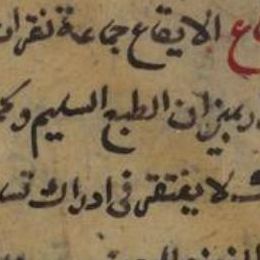 الايقاع جماعة نقرات
بميزان الطبع السليم وكما
لا يفتقر فى ادراك تسا